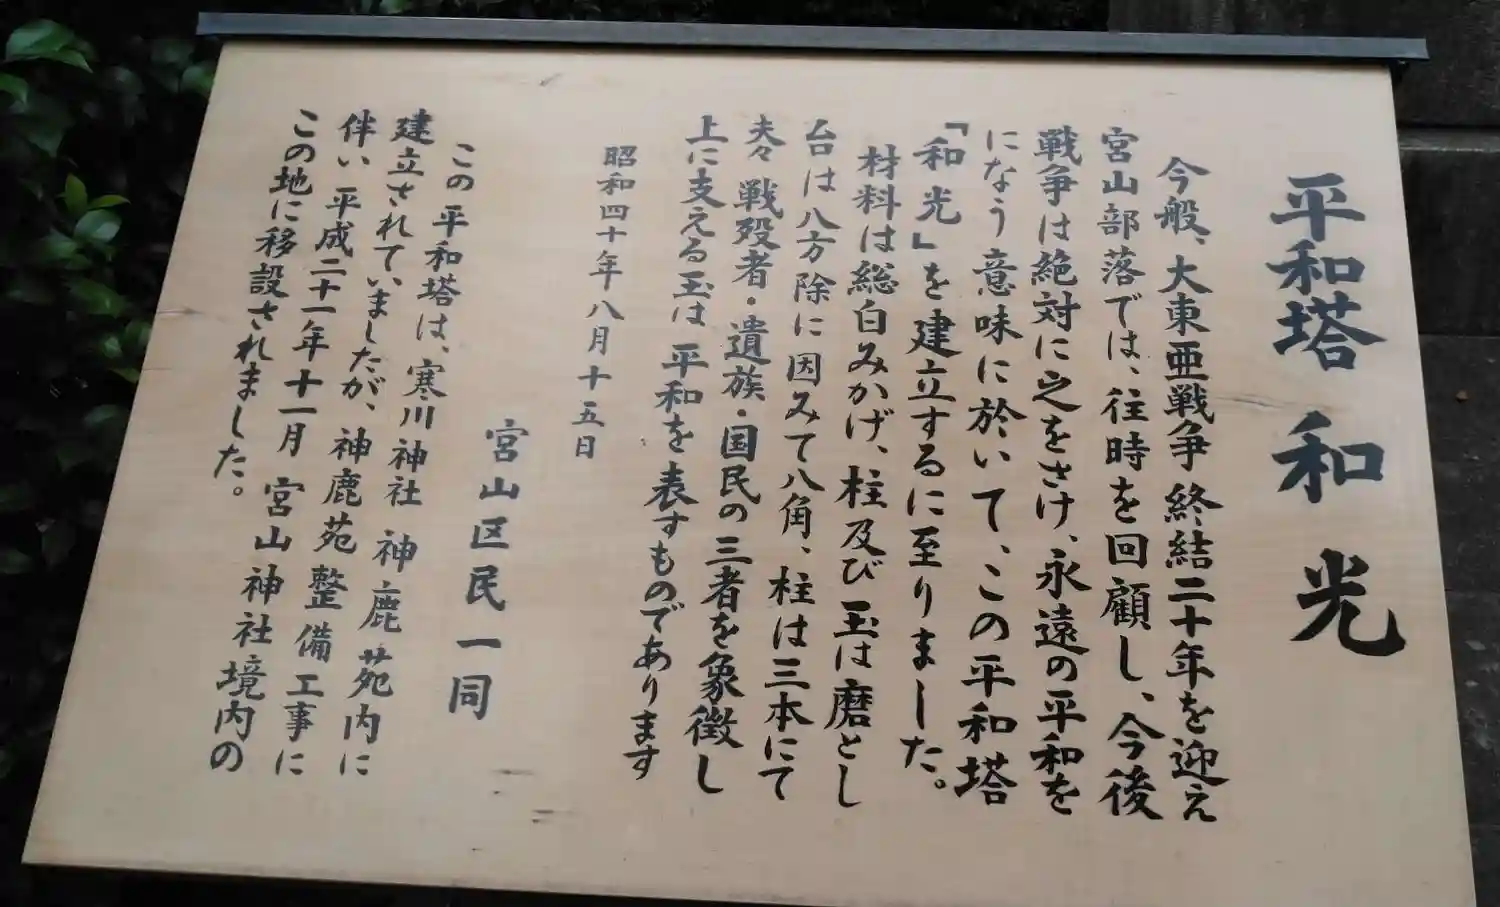 平和塔 和光
今般、大東亜戦争終結二十年を迎え
宮山部落では、往時を回顧し、今後
戦争は絶対に之をさけ、永遠の平和を
になう意味に於いて、この平和塔
「和光」を建立するに至りました。
材料は総白みかげ、柱及び玉は磨とし
台は八方除に因みて八角、柱は三本にて
夫々戦歿者・遺族・国民の三者を象徴し
上に支える玉は平和を表すものであります
昭和四十年八月十五日
宮山区民一同
この平和塔は、寒川神社 神鹿苑内に
建立されていましたが、神鹿苑整備工事に
伴い 平成二十一年十一月 宮山神社境内の
この地に移設されました。